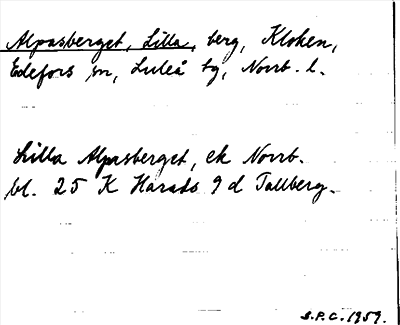 Alpasberget, Lilla, berg, Kloken,
Edefors sn, Luleå tg, Norrb. l.
Lilla Alpasberget, ek Norrb.
bl. 25 K Harads 9 d Tallberg.
S.P.C. 1959.